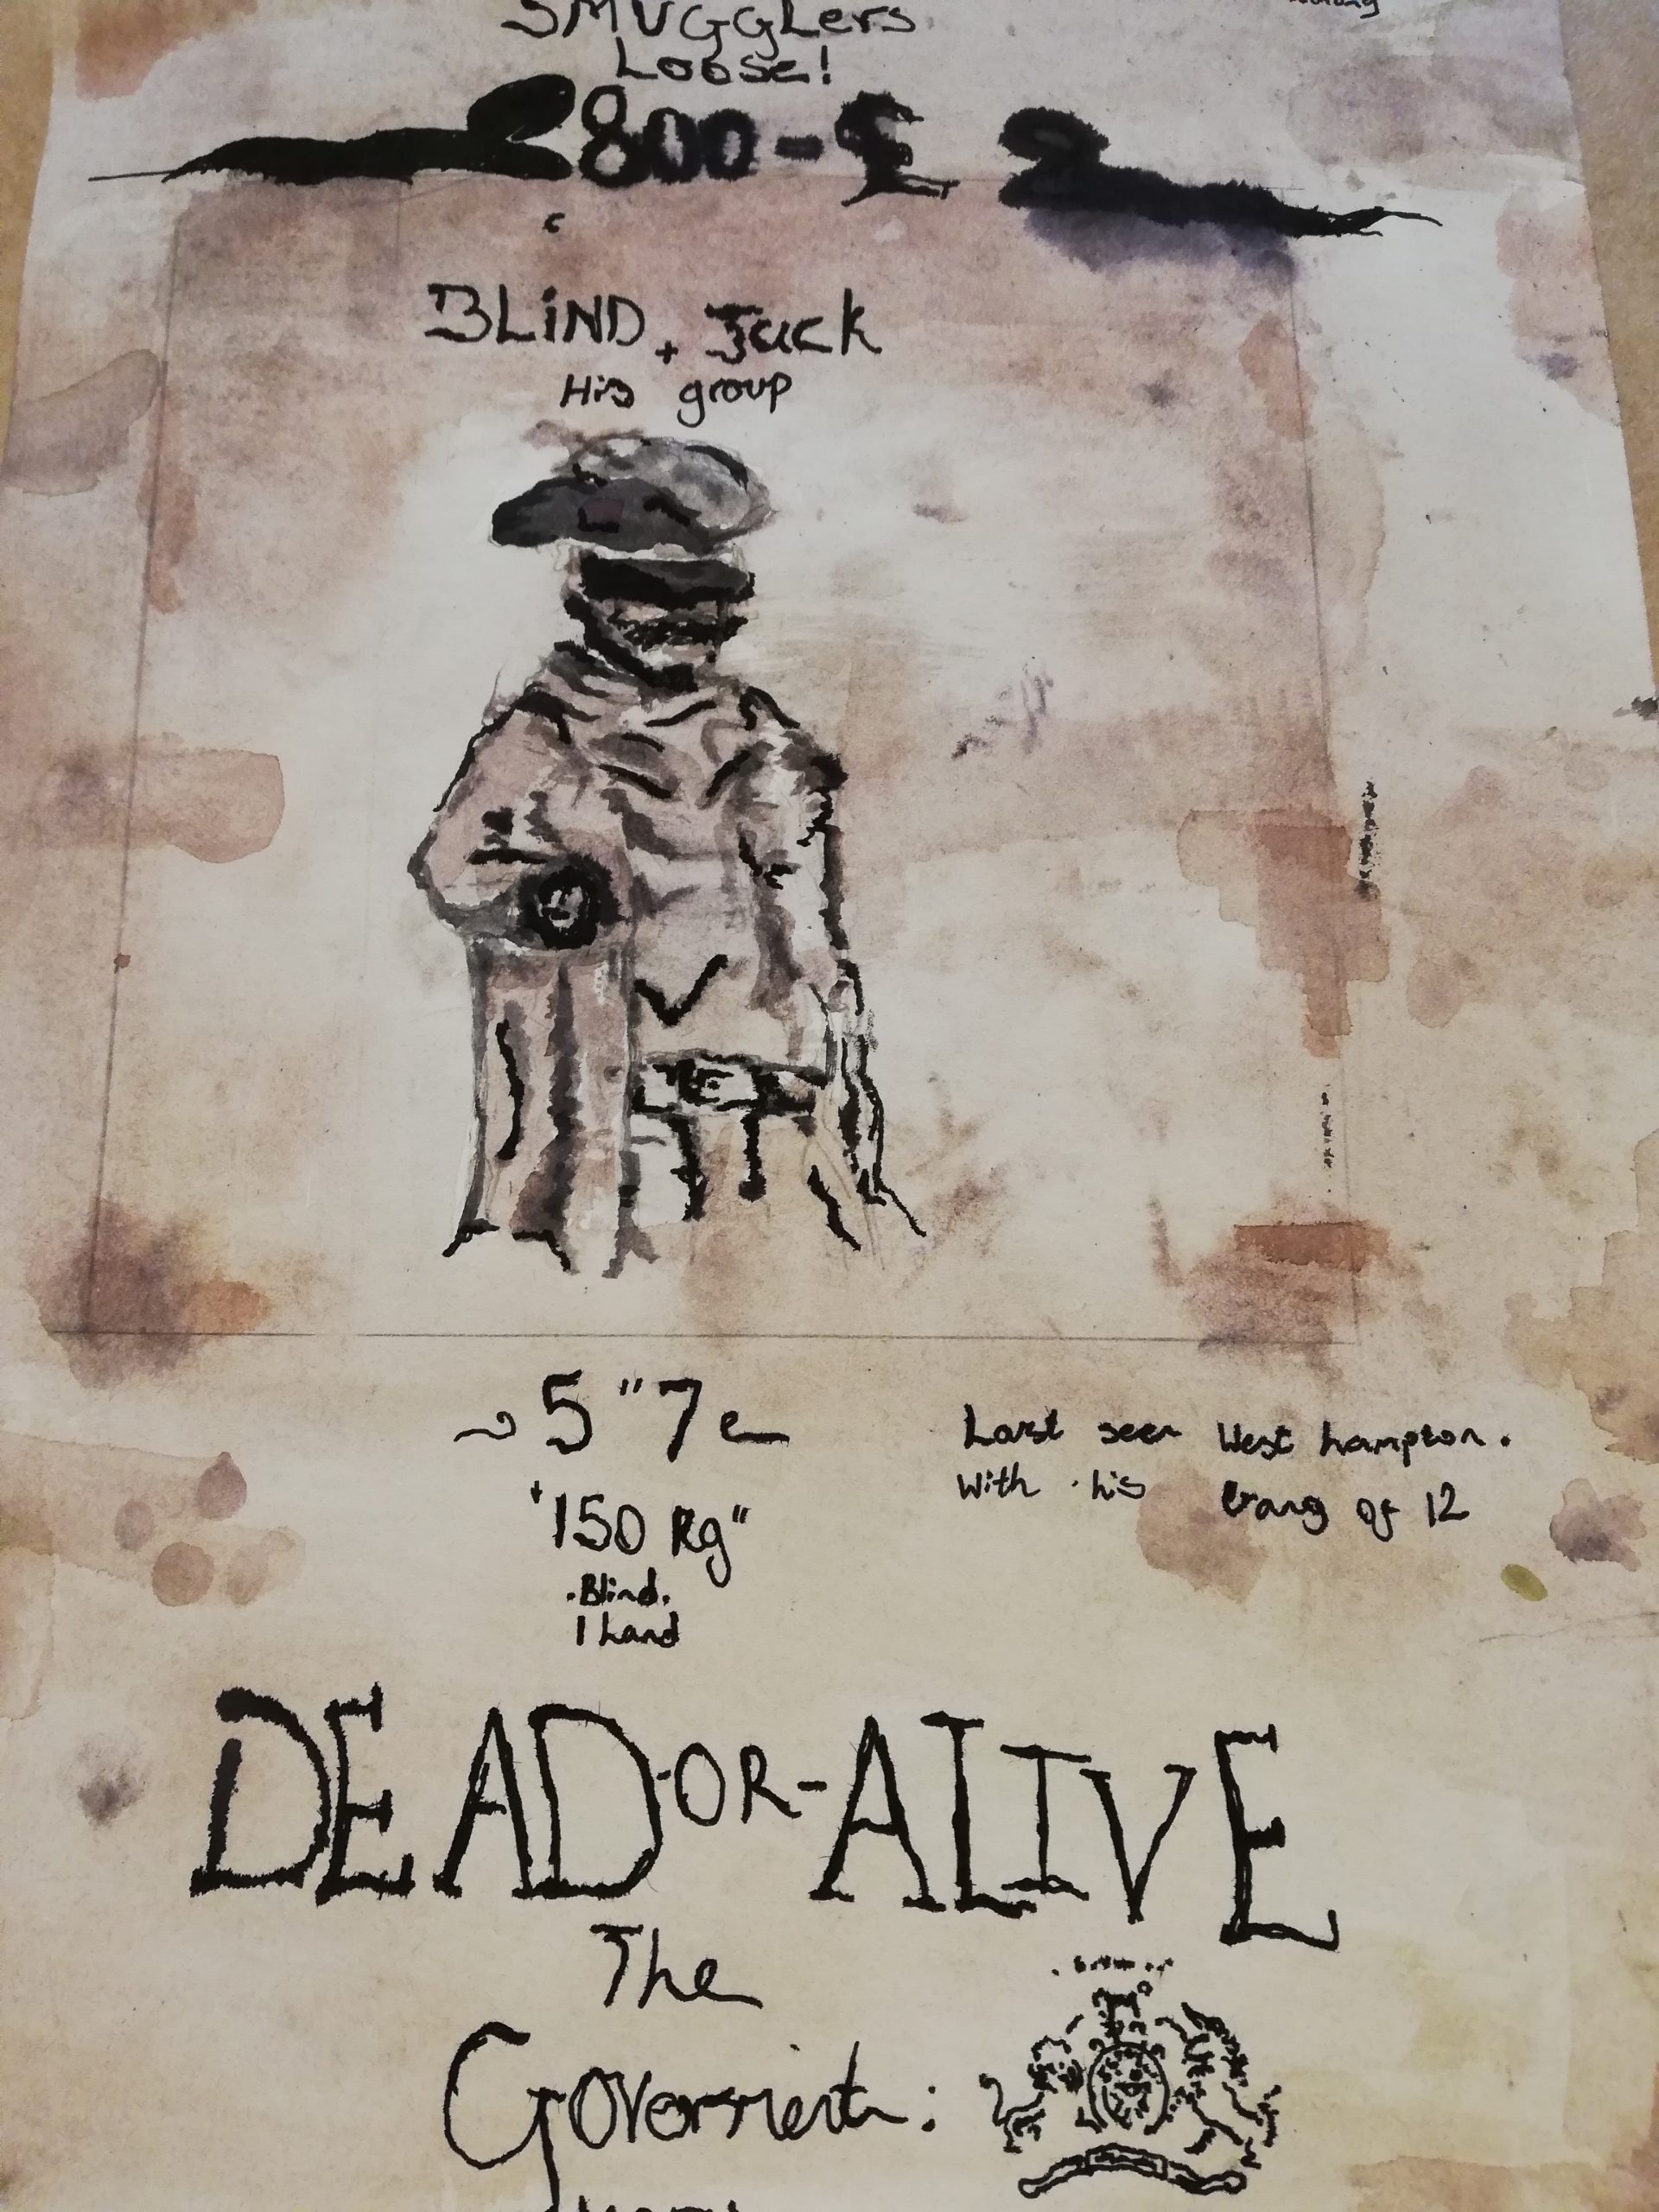 SMUGGLers
Loose!
800-£
BLiND + Jack
His group
5"7
"150 Kg"
.Blind.
1 hand
Last seen West hampton.
With his Gang of 12
DEAD-OR-ALIVE
The
Government: